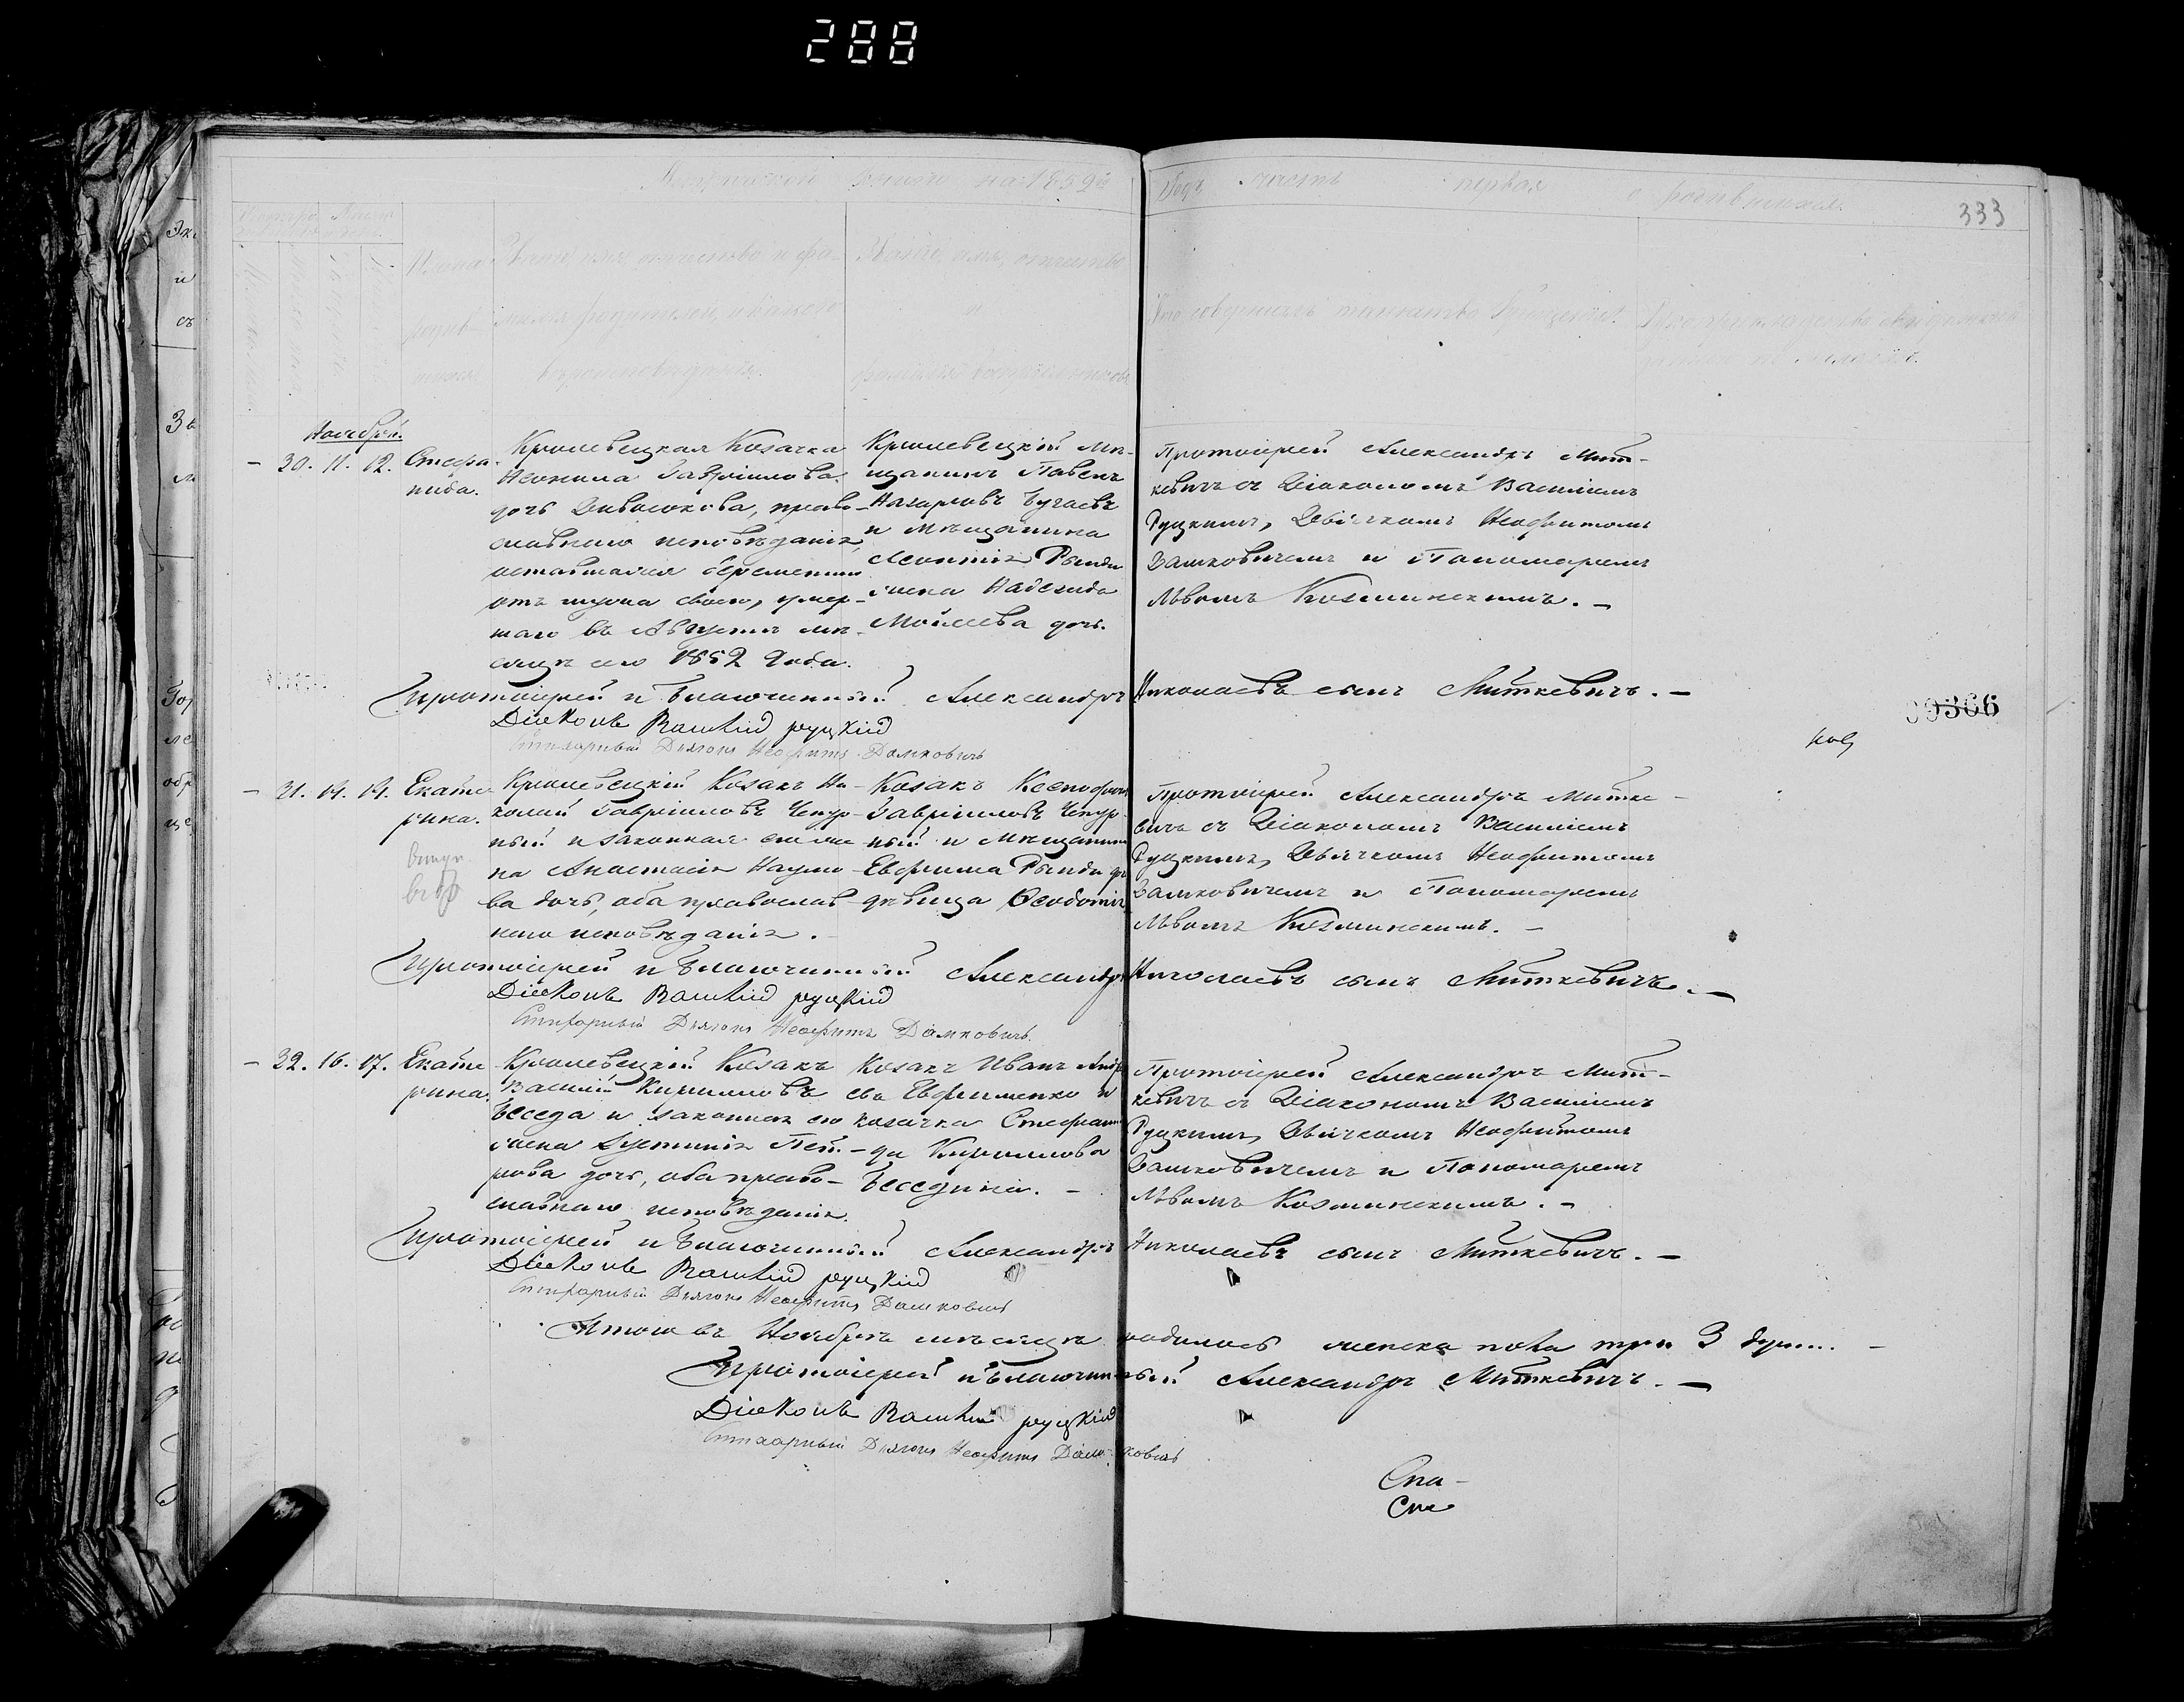 288
Метрической книги на 1852й
Годъ часть первая о родившихся.
333
Званіе, имя, отчество и фа-
милія родителей, и какого
вѣроисповѣданія.
Званіе, имя, отчество
и
фамилія воспріемниковъ
Кто совершалъ таинство Крещенія.
Ноябрь.
- 30. 11. 12.
Степа-
нида.
Кролевецкая Козачка
Неонила Гавріилова
дочь, право-
славнаго исповѣданія,
оставшаяся беременною
отъ мужа своего, умер-
шаго въ Августѣ мѣ-
сяцѣ сего 1852 года.
Кролевецкій Мѣ-
щанинъ Павелъ
Назарьевъ Бугаевъ
и Мѣщанина
Леонтія Рынди
жена Надежда
Моисеева дочь.
Протоіерей Александръ Мит-
кевичъ съ Діакономъ Василіемъ
Руцкимъ, Дьячкомъ Неофитомъ
Дашковичемъ и Пономаремъ
Львомъ Козминскимъ. -
Протоіерей и Благочинный Александръ Николаевъ сынъ Миткевичъ. -
Діаконъ Василій Руцкій
Стихарный Дьячокъ Неофитъ Дашковичъ
00366
- 31. 14. 14.
Екате-
рина.
Кролевецкій Козакъ Ни-
колай Гавріиловъ Чепур-
ный и законная его же-
на Анастасія Наумо-
ва дочь, оба православ-
наго исповѣданія.
Козакъ Ксенофонтъ
Гавріиловъ Чепур-
ный и Мѣщанина
Ефрима Рынди дочь
дѣвица Ѳеодосія
Протоіерей Александръ Миткe-
вичъ съ Діакономъ Василіемъ
Руцкимъ, Дьячкомъ Неофитомъ
Дашковичемъ и Пономаремъ
Львомъ Козминскимъ. -
Протоіерей и Благочинный Александръ Николаевъ сынъ Миткевичъ. -
Діаконъ Василій Руцкій
Стихарный Дьячокъ Неофитъ Дашковичъ.
- 32. 16. 17.
Екате-
рина.
Кролевецкій Козакъ
Василій Кирилловъ
Беседа и законная его
жена Евгенія Пет-
рова дочь, оба право-
славнаго исповѣданія.
Козакъ Иванъ Андре-
евъ Ефименко и
козачка Степани-
да Кириллова
Беседина. -
Протоіерей Александръ Мит-
кевичъ съ Діакономъ Василіемъ
Руцкимъ, Дьячкомъ Неофитомъ
Дашковичемъ и Пономаремъ
Львомъ Козминскимъ. -
Протоіерей и Благочинный Александръ Николаевъ сынъ Миткевичъ. -
Діаконъ Василій Руцкій
Стихарный Дьячокъ Неофитъ Дашковичъ
Итого въ Ноябрѣ мѣсяцѣ родилось женска пола три 3 души. -
Протоіерей и Благочинный Александръ Миткевичъ. -
Діаконъ Василій Руцкій
Стихарный Дьячокъ Неофитъ Дашковичъ
Спа-
Спа